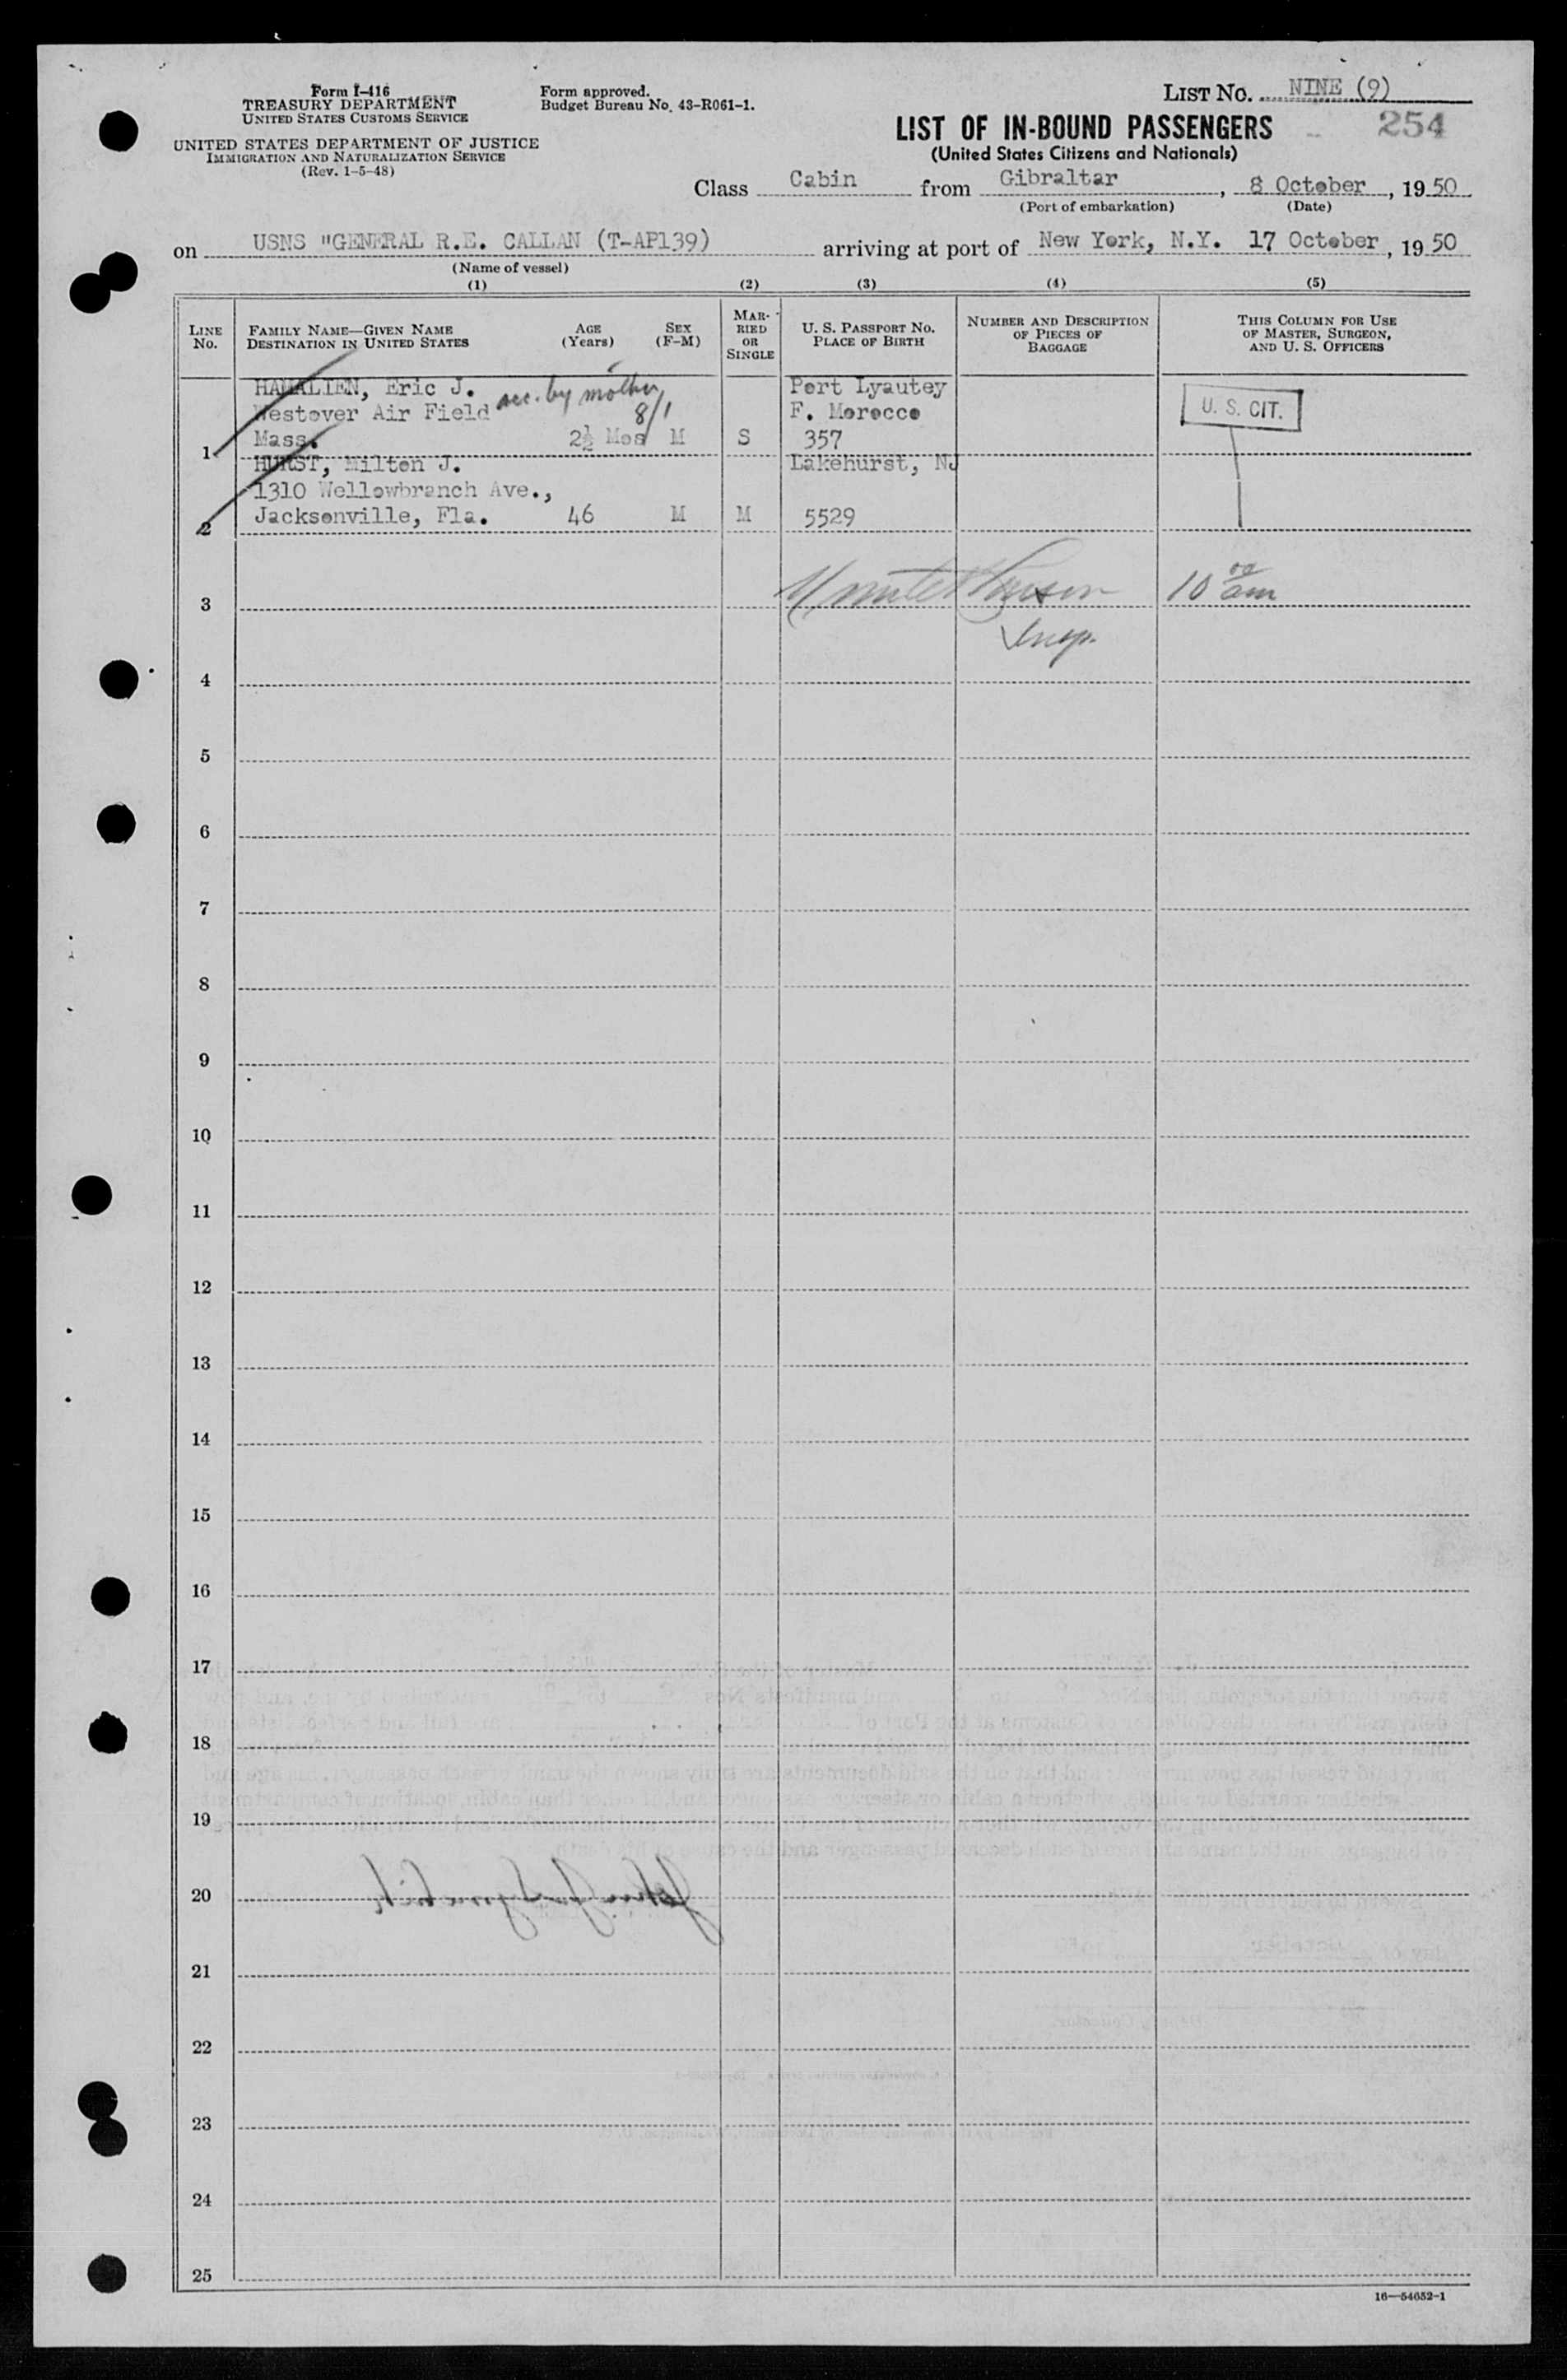 Form I-416
TREASURY DEPARTMENT
UNITED STATES CUSTOMS SERVICE
UNITED STATES DEPARTMENT OF JUSTICE
IMMIGRATION AND NATURALIZATION SERVICE
(Rev. 1-5-48)
Form approved.
Budget Bureau No. 43-R061-1.
LIST No. NINE (9)
254
LIST OF IN-BOUND PASSENGERS
(United States Citizens and Nationals)
Class Cabin from Gibraltar, 8 October, 19 50
(Port of embarkation) (Date)
on USNS "GENERAL R.E. CALLAN (T-AP139) arriving at port of New York, N.Y. 17 October, 19 50
(Name of vessel)
(1) (2) (3) (4) (5)
LINE No.
FAMILY NAME—GIVEN NAME
DESTINATION IN UNITED STATES
AGE (Years)
SEX (F-M)
MARRIED OR SINGLE
U. S. PASSPORT NO.
PLACE OF BIRTH
NUMBER AND DESCRIPTION
OF PIECES OF
BAGGAGE
THIS COLUMN FOR USE
OF MASTER, SURGEON,
AND U. S. OFFICERS
HAMALIEN, Eric J. acc. by mother Port Lyautey
Westover Air Field 8/1 F. Morocco U. S. CIT.
1 Mass. 2½ Mos M S 357
HURST, Milton J. Lakehurst, NJ
1310 Wellowbranch Ave.,
2 Jacksonville, Fla. 46 M M 5529
3 10 00 am
Insp.
4
5
6
7
8
9
10
11
12
13
14
15
16
17
18
19
20
21
22
23
24
25
16—54652-1